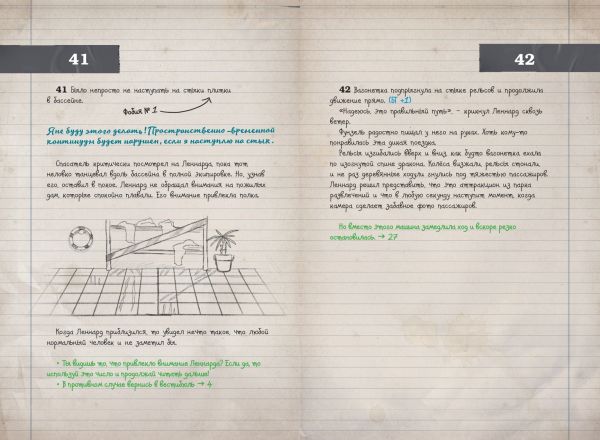 41
41 Было непросто не наступать на стыки плитки
в бассейне.
Фобия № 1
Я не буду этого делать! Пространственно-временной
континуум будет нарушен, если я наступлю на стык.
Спасатель критически посмотрел на Леннарда, пока тот
неловко танцевал вдоль бассейна в полной экипировке. Но, узнав
его, оставил в покое. Леннард не обращал внимания на пожилых
дам, которые спокойно плавали. Его внимание привлекла полка.
Когда Леннард приблизился, то увидел нечто такое, что любой
нормальный человек и не заметил бы.
• Ты видишь то, что привлекло внимание Леннарда? Если да, то
используй это число и продолжай читать дальше!
• В противном случае вернись в вестибюль → 4
42
42 Вагонетка подпрыгнула на стыке рельсов и продолжила
движение прямо. (+1)
«Надеюсь, это правильный путь», – крикнул Леннард сквозь
ветер.
Фунзель радостно пищал у него на руках. Хоть кому-то
понравилась эта дикая поездка.
Рельсы изгибались вверх и вниз, как будто вагонетка ехала
по изогнутой спине дракона. Колёса визжали, рельсы стонали,
и не раз деревянные ходули гнулись под тяжестью пассажиров.
Леннард решил представить, что это аттракцион из парка
развлечений и что в любую секунду наступит момент, когда
камера сделает забавное фото пассажиров.
Но вместо этого машина замедлила ход и вскоре резко
остановилась. → 27